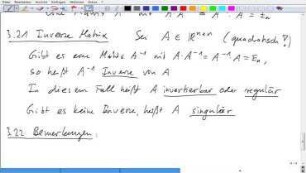 3.21 Inverse Matrix Sei A ∈ ℝⁿˣⁿ (quadratisch!)
Gibt es eine Matrix A⁻¹ mit A·A⁻¹ = A⁻¹·A = Eₙ,
so heißt A⁻¹ Inverse von A
In diesem Fall heißt A invertierbar oder regulär
Gibt es keine Inverse, heißt A singulär
3.22 Bemerkungen: